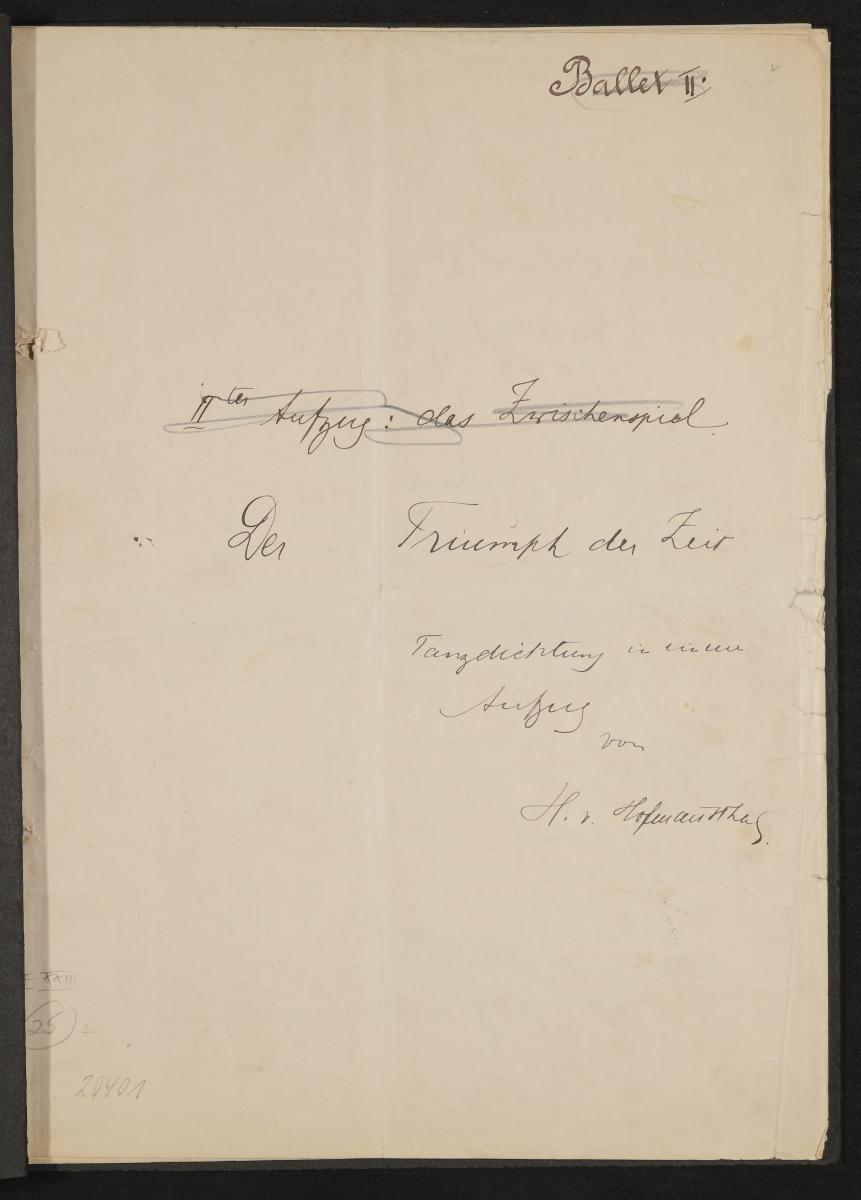 Ballet II.
IIter Aufzug: das Zwischenspiel.
Der Triumph der Zeit
Tanzdichtung in einem
Aufzug
von
H. v. Hofmannsthal.
XXIII
25 2
20401